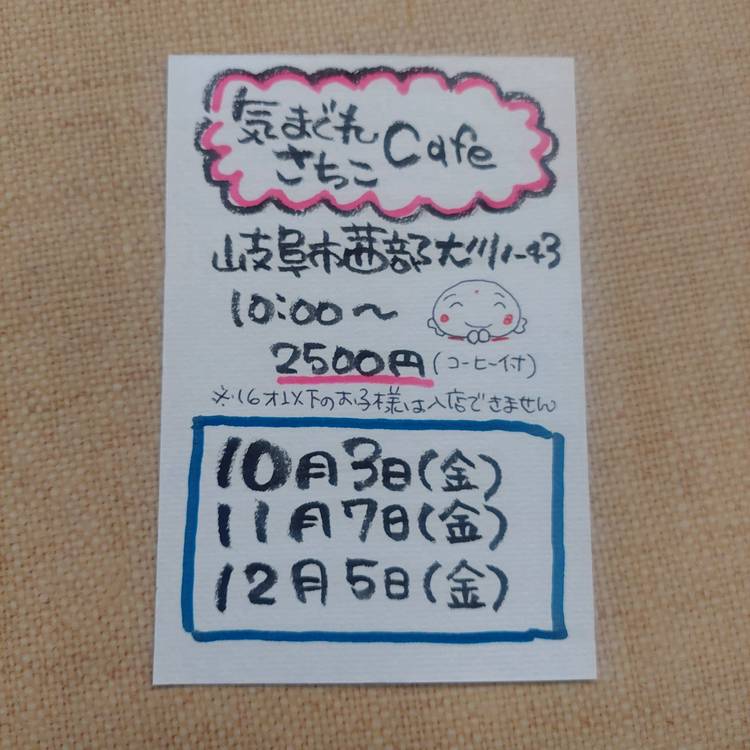 気まぐれ
さちっこ Cafe
岐阜市茜部大川1-43
10:00〜
2500円(コーヒー付)
※16才以下のお子様は入店できません
10月3日(金)
11月7日(金)
12月5日(金)